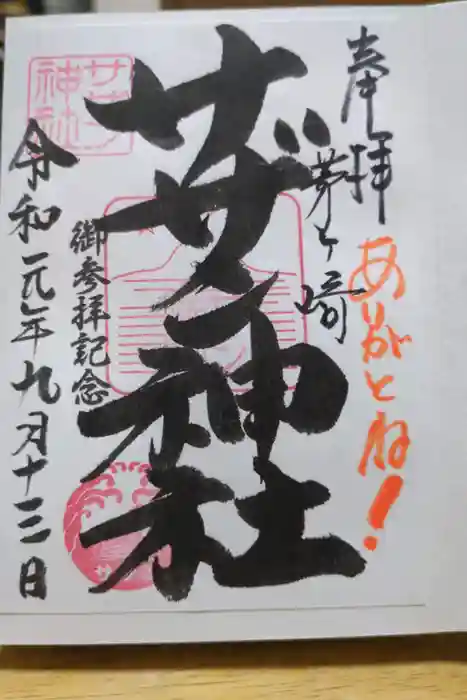 奉拝
ありがとね!
茅ヶ崎
サザン神社
御参拝記念
令和元年九月十三日
サザン
神社